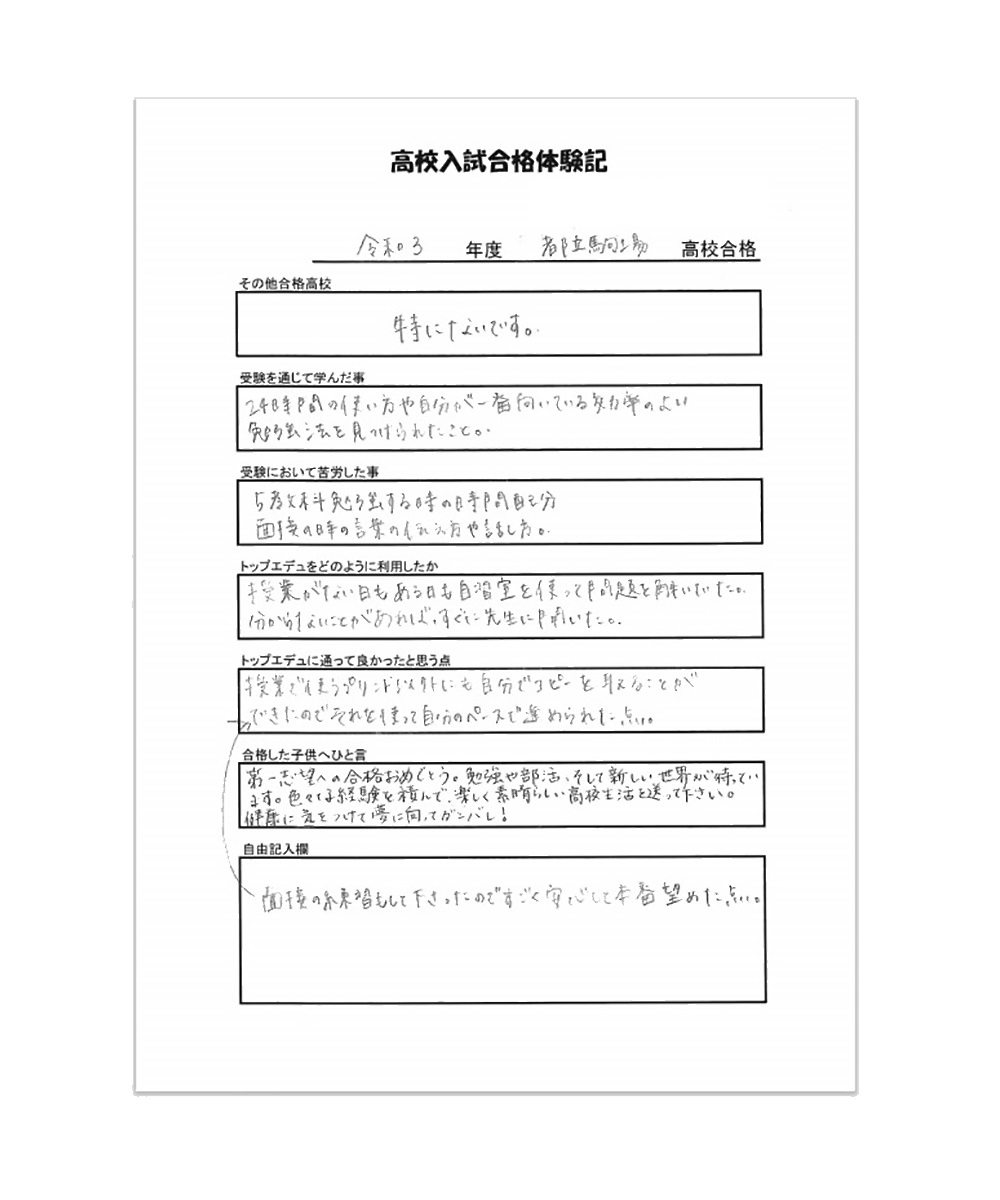 高校入試合格体験記
令和3 年度 都立駒場 高校合格
その他合格高校
特にないです。
受験を通じて学んだ事
24時間の使い方や自分が一番向いている効率のよい
勉強法を見つけられたこと。
受験において苦労した事
5教科勉強する時の時間配分
面接の時の言葉の伝え方や話し方。
トップエデュをどのように利用したか
授業がない日もある日も自習室を使って問題を解いていた。
分からないことがあれば、すぐに先生に聞いた。
トップエデュに通って良かったと思う点
授業で使うプリント以外にも自分でコピーを取ることが
できたのでそれを使って自分のペースで進められた点。
合格した子供へひと言
第一志望への合格おめでとう。勉強や部活、そして新しい世界が待ってい
ます。色々な経験を積んで、楽しく素晴らしい高校生活を送って下さい。
健康に気をつけて夢に向ってガンバレ!
自由記入欄
面接の練習もして下さったのですごく安心して本番望めた点。